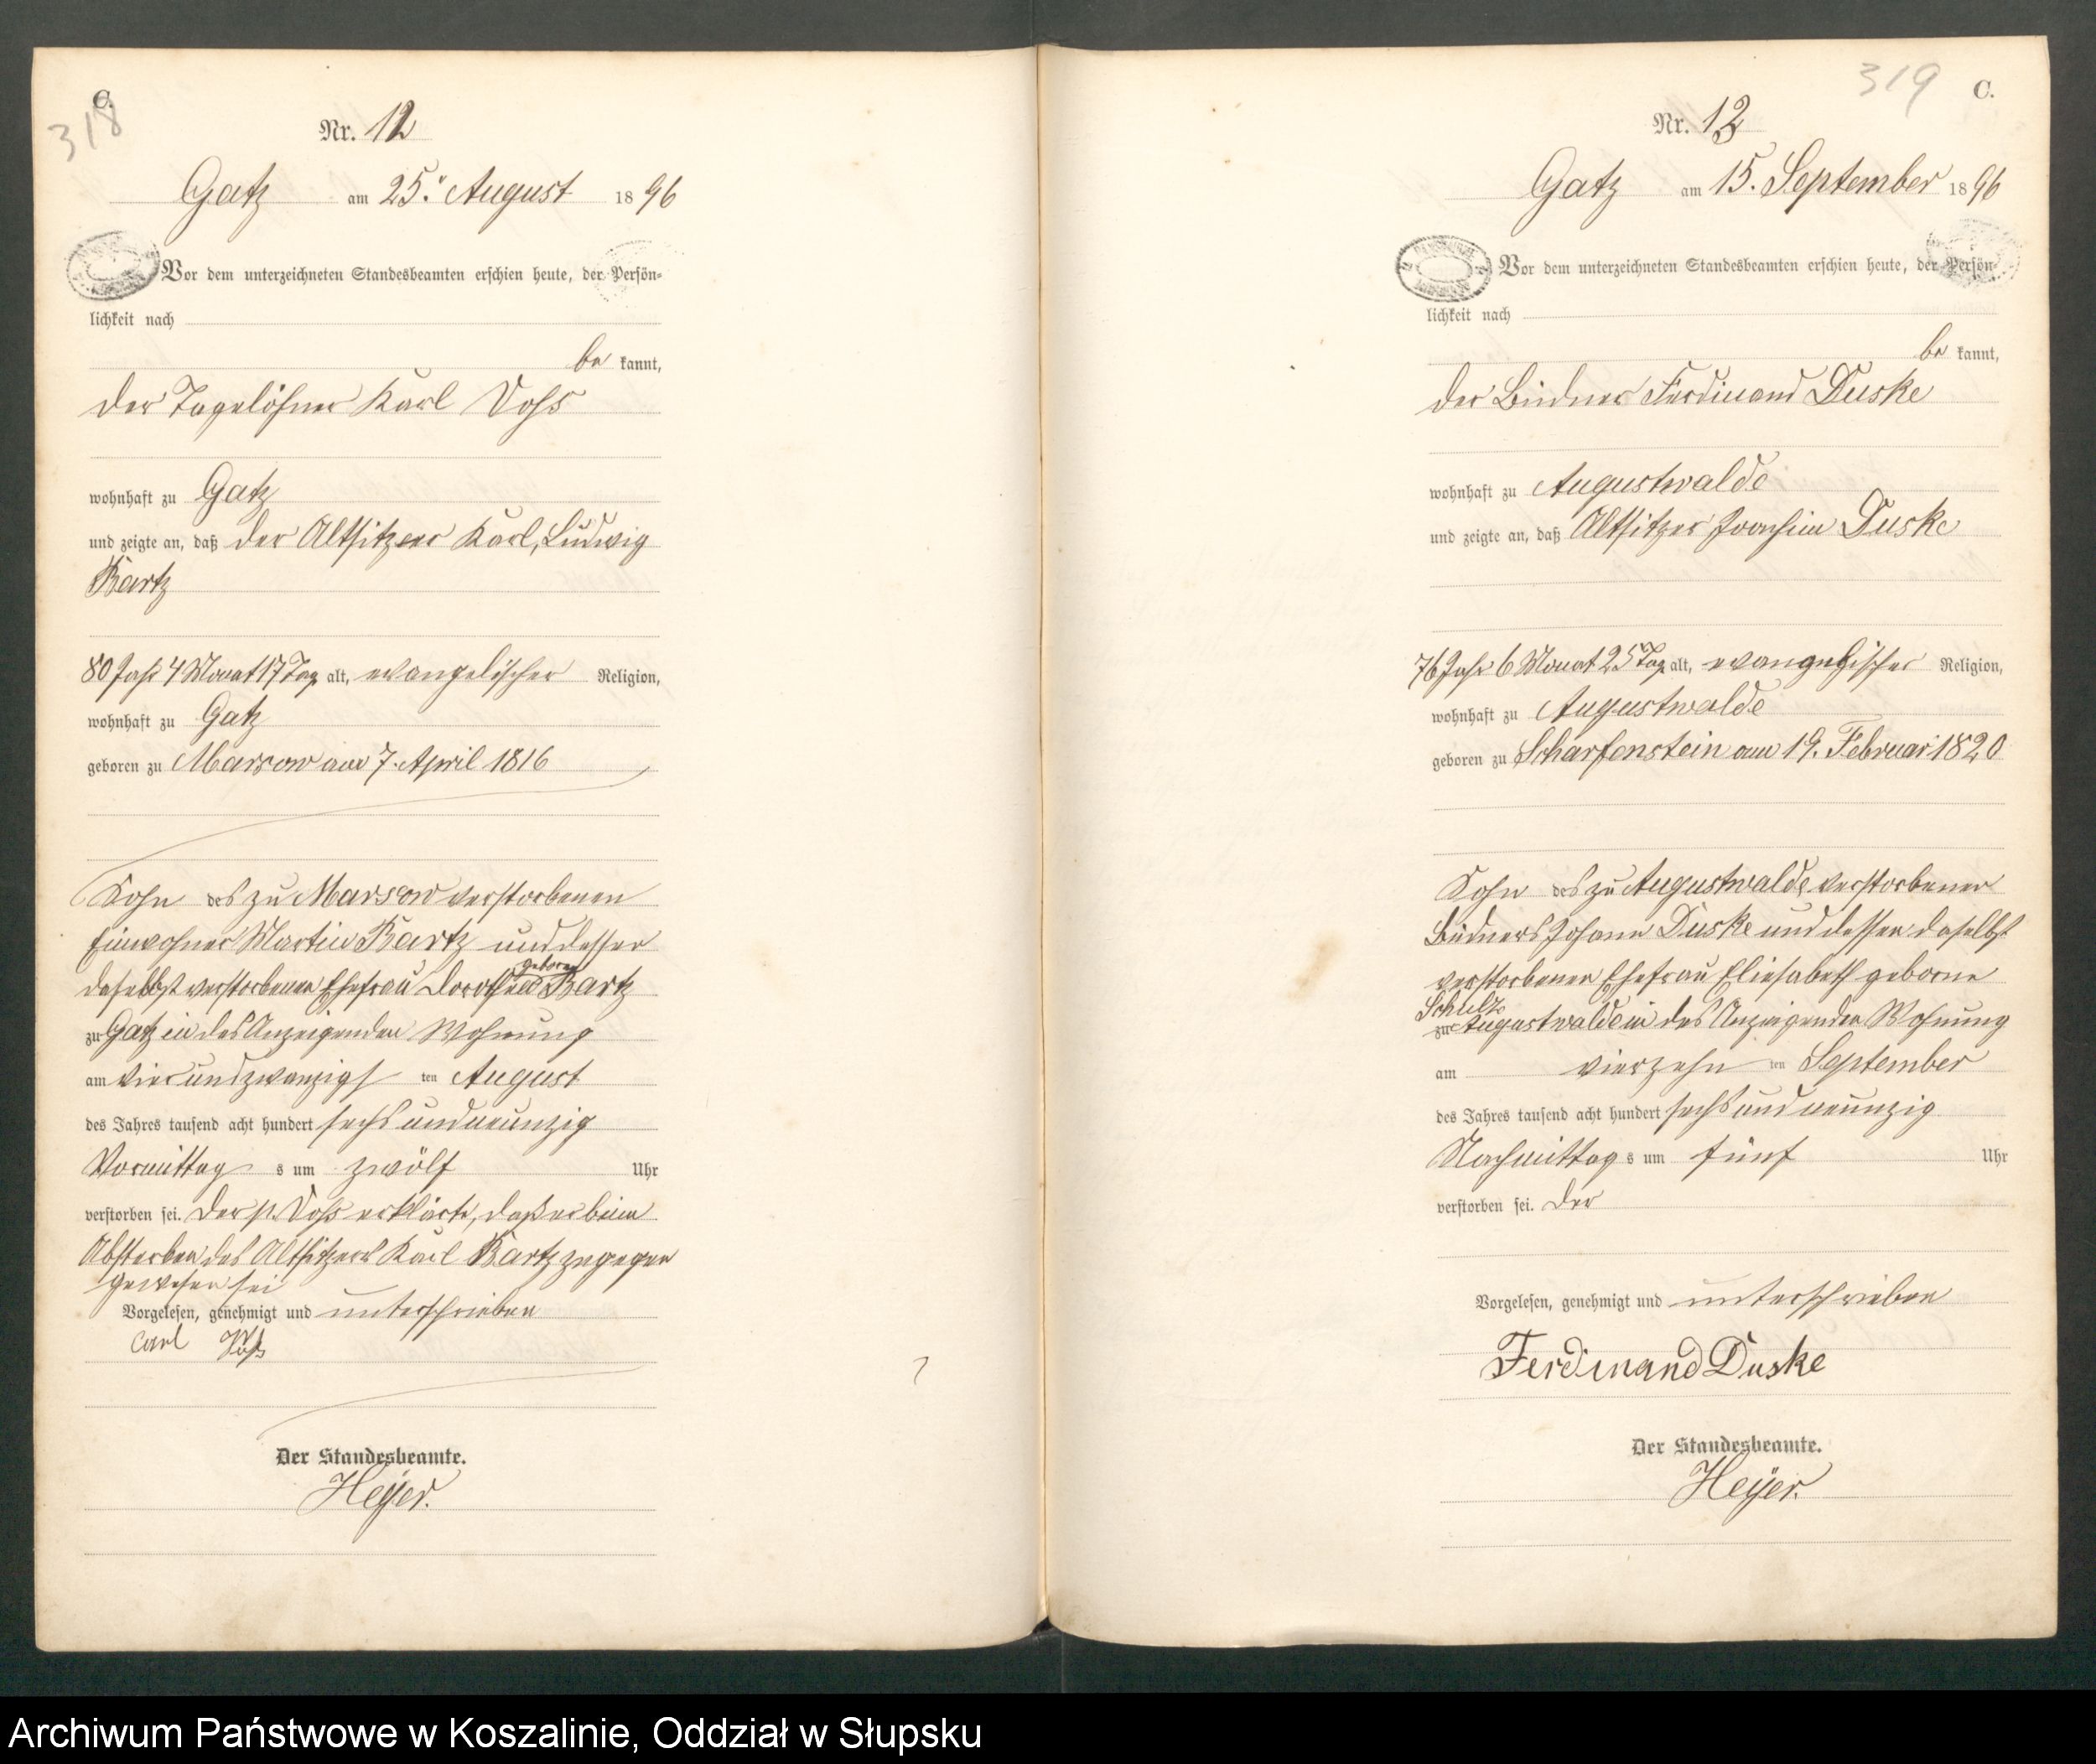 C.
318
Nr. 12
Gatz am 25. August 1896
Vor dem unterzeichneten Standesbeamten erschien heute, der Persön-
lichkeit nach
be kannt,
der Tagelöhner Karl Voss
wohnhaft zu Gatz
und zeigte an, daß der Altsitzer Karl, Ludwig
Bartz
80 Jahr 4 Monat 17 Tag alt, evangelischer Religion,
wohnhaft zu Gatz
geboren zu Marsow am 7. April 1816
Sohn des zu Marsow verstorbenen
Einwohner Martin Bartz und dessen
geboren
daselbst verstorbenen Ehefrau Dorothea Bartz
zu Gatz in des Anzeigenden Wohnung
am vierundzwanzigs ten August
des Jahres tausend acht hundert sechs und neunzig
Vormittag s um zwölf Uhr
verstorben sei. Der p. Voss erklärte, daß er beim
Absterben des Altsitzers Karl Bartz zugegen
gewesen sei
Vorgelesen, genehmigt und unterschrieben
Carl Voß
Der Standesbeamte.
Heyer.
319
C.
Nr. 13
Gatz am 15. September 1896
Vor dem unterzeichneten Standesbeamten erschien heute, der Persön-
lichkeit nach
be kannt,
der Büdner Ferdinand Duske
wohnhaft zu Augustwalde
und zeigte an, daß Altsitzer Joachim Duske
76 Jahr 6 Monat 25 Tag alt, evangelischer Religion,
wohnhaft zu Augustwalde
geboren zu Scharfenstein am 19. Februar 1820
Sohn des zu Augustwalde verstorbener
Büdners Johann Duske und dessen daselbst
verstorbenen Ehefrau Eliesabeth geborne
Schulz
zu Augustwalde in des Anzeigenden Wohnung
am vierzehn ten September
des Jahres tausend acht hundert sechs und neunzig
Nachmittag s um fünf Uhr
verstorben sei. Der
Vorgelesen, genehmigt und unterschrieben
Ferdinand Duske
Der Standesbeamte.
Heyer.
Archiwum Państwowe w Koszalinie, Oddział w Słupsku